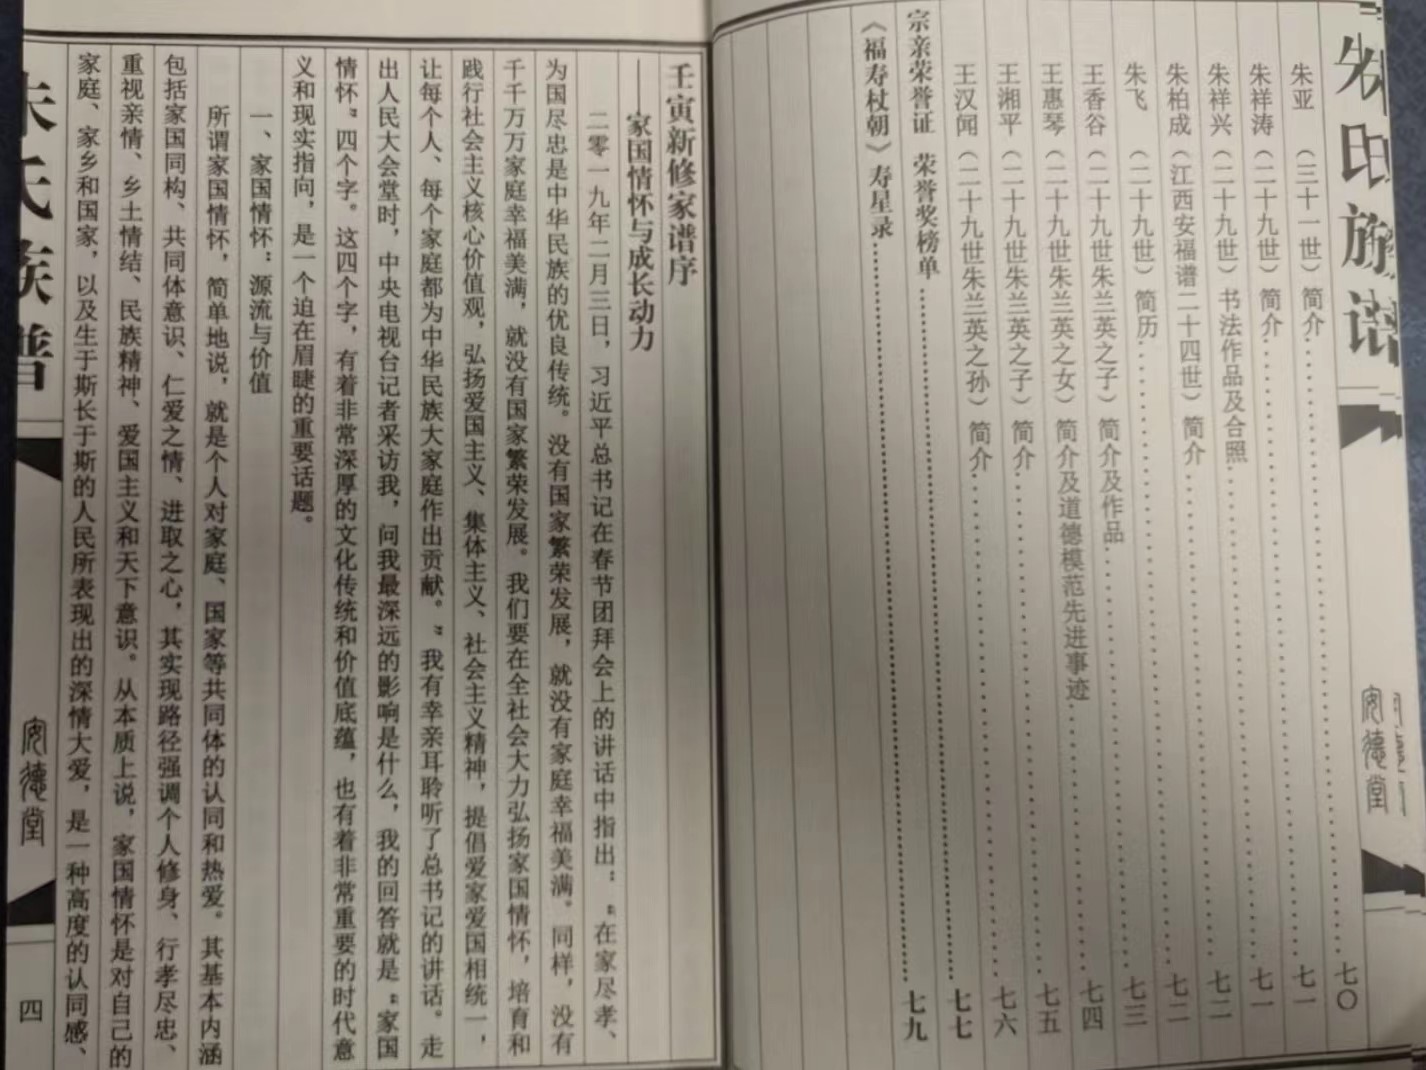 朱氏族谱
安德堂
朱亚（三十一世）简介……七〇
朱祥涛（二十九世）简介……七一
朱祥兴（二十九世）书法作品及合照……七一
朱柏成（江西安福谱二十四世）简介……七二
朱飞（二十九世）简历……七二
王香谷（二十九世朱兰英之子）简介及作品……七三
王惠琴（二十九世朱兰英之女）简介及道德模范先进事迹……七四
王湘平（二十九世朱兰英之子）简介……七五
王汉闻（二十九世朱兰英之孙）简介……七六
宗亲荣誉证 荣誉奖榜单……七七
《福寿杖朝》寿星录……七九
壬寅新修家谱序
——家国情怀与成长动力
二零一九年二月三日，习近平总书记在春节团拜会上的讲话中指出：“在家尽孝、
为国尽忠是中华民族的优良传统。没有国家繁荣发展，就没有家庭幸福美满。同样，没有
千千万万家庭幸福美满，就没有国家繁荣发展。我们要在全社会大力弘扬家国情怀，培育和
践行社会主义核心价值观，弘扬爱国主义、集体主义、社会主义精神，提倡爱家爱国相统一，
让每个人、每个家庭都为中华民族大家庭作出贡献。”我有幸亲耳聆听了总书记的讲话。走
出人民大会堂时，中央电视台记者采访我，问我最深远的影响是什么，我的回答就是“家国
情怀”四个字。这四个字，有着非常深厚的文化传统和价值底蕴，也有着非常重要的时代意
义和现实指向，是一个迫在眉睫的重要话题。
一、家国情怀：源流与价值
所谓家国情怀，简单地说，就是个人对家庭、国家等共同体的认同和热爱。其基本内涵
包括家国同构、共同体意识、仁爱之情、进取之心，其实现路径强调个人修身、行孝尽忠、
重视亲情、乡土情结、民族精神、爱国主义和天下意识。从本质上说，家国情怀是对自己的
家庭、家乡和国家，以及生于斯长于斯的人民所表现出的深情大爱，是一种高度的认同感、
朱氏族谱
安德堂
四